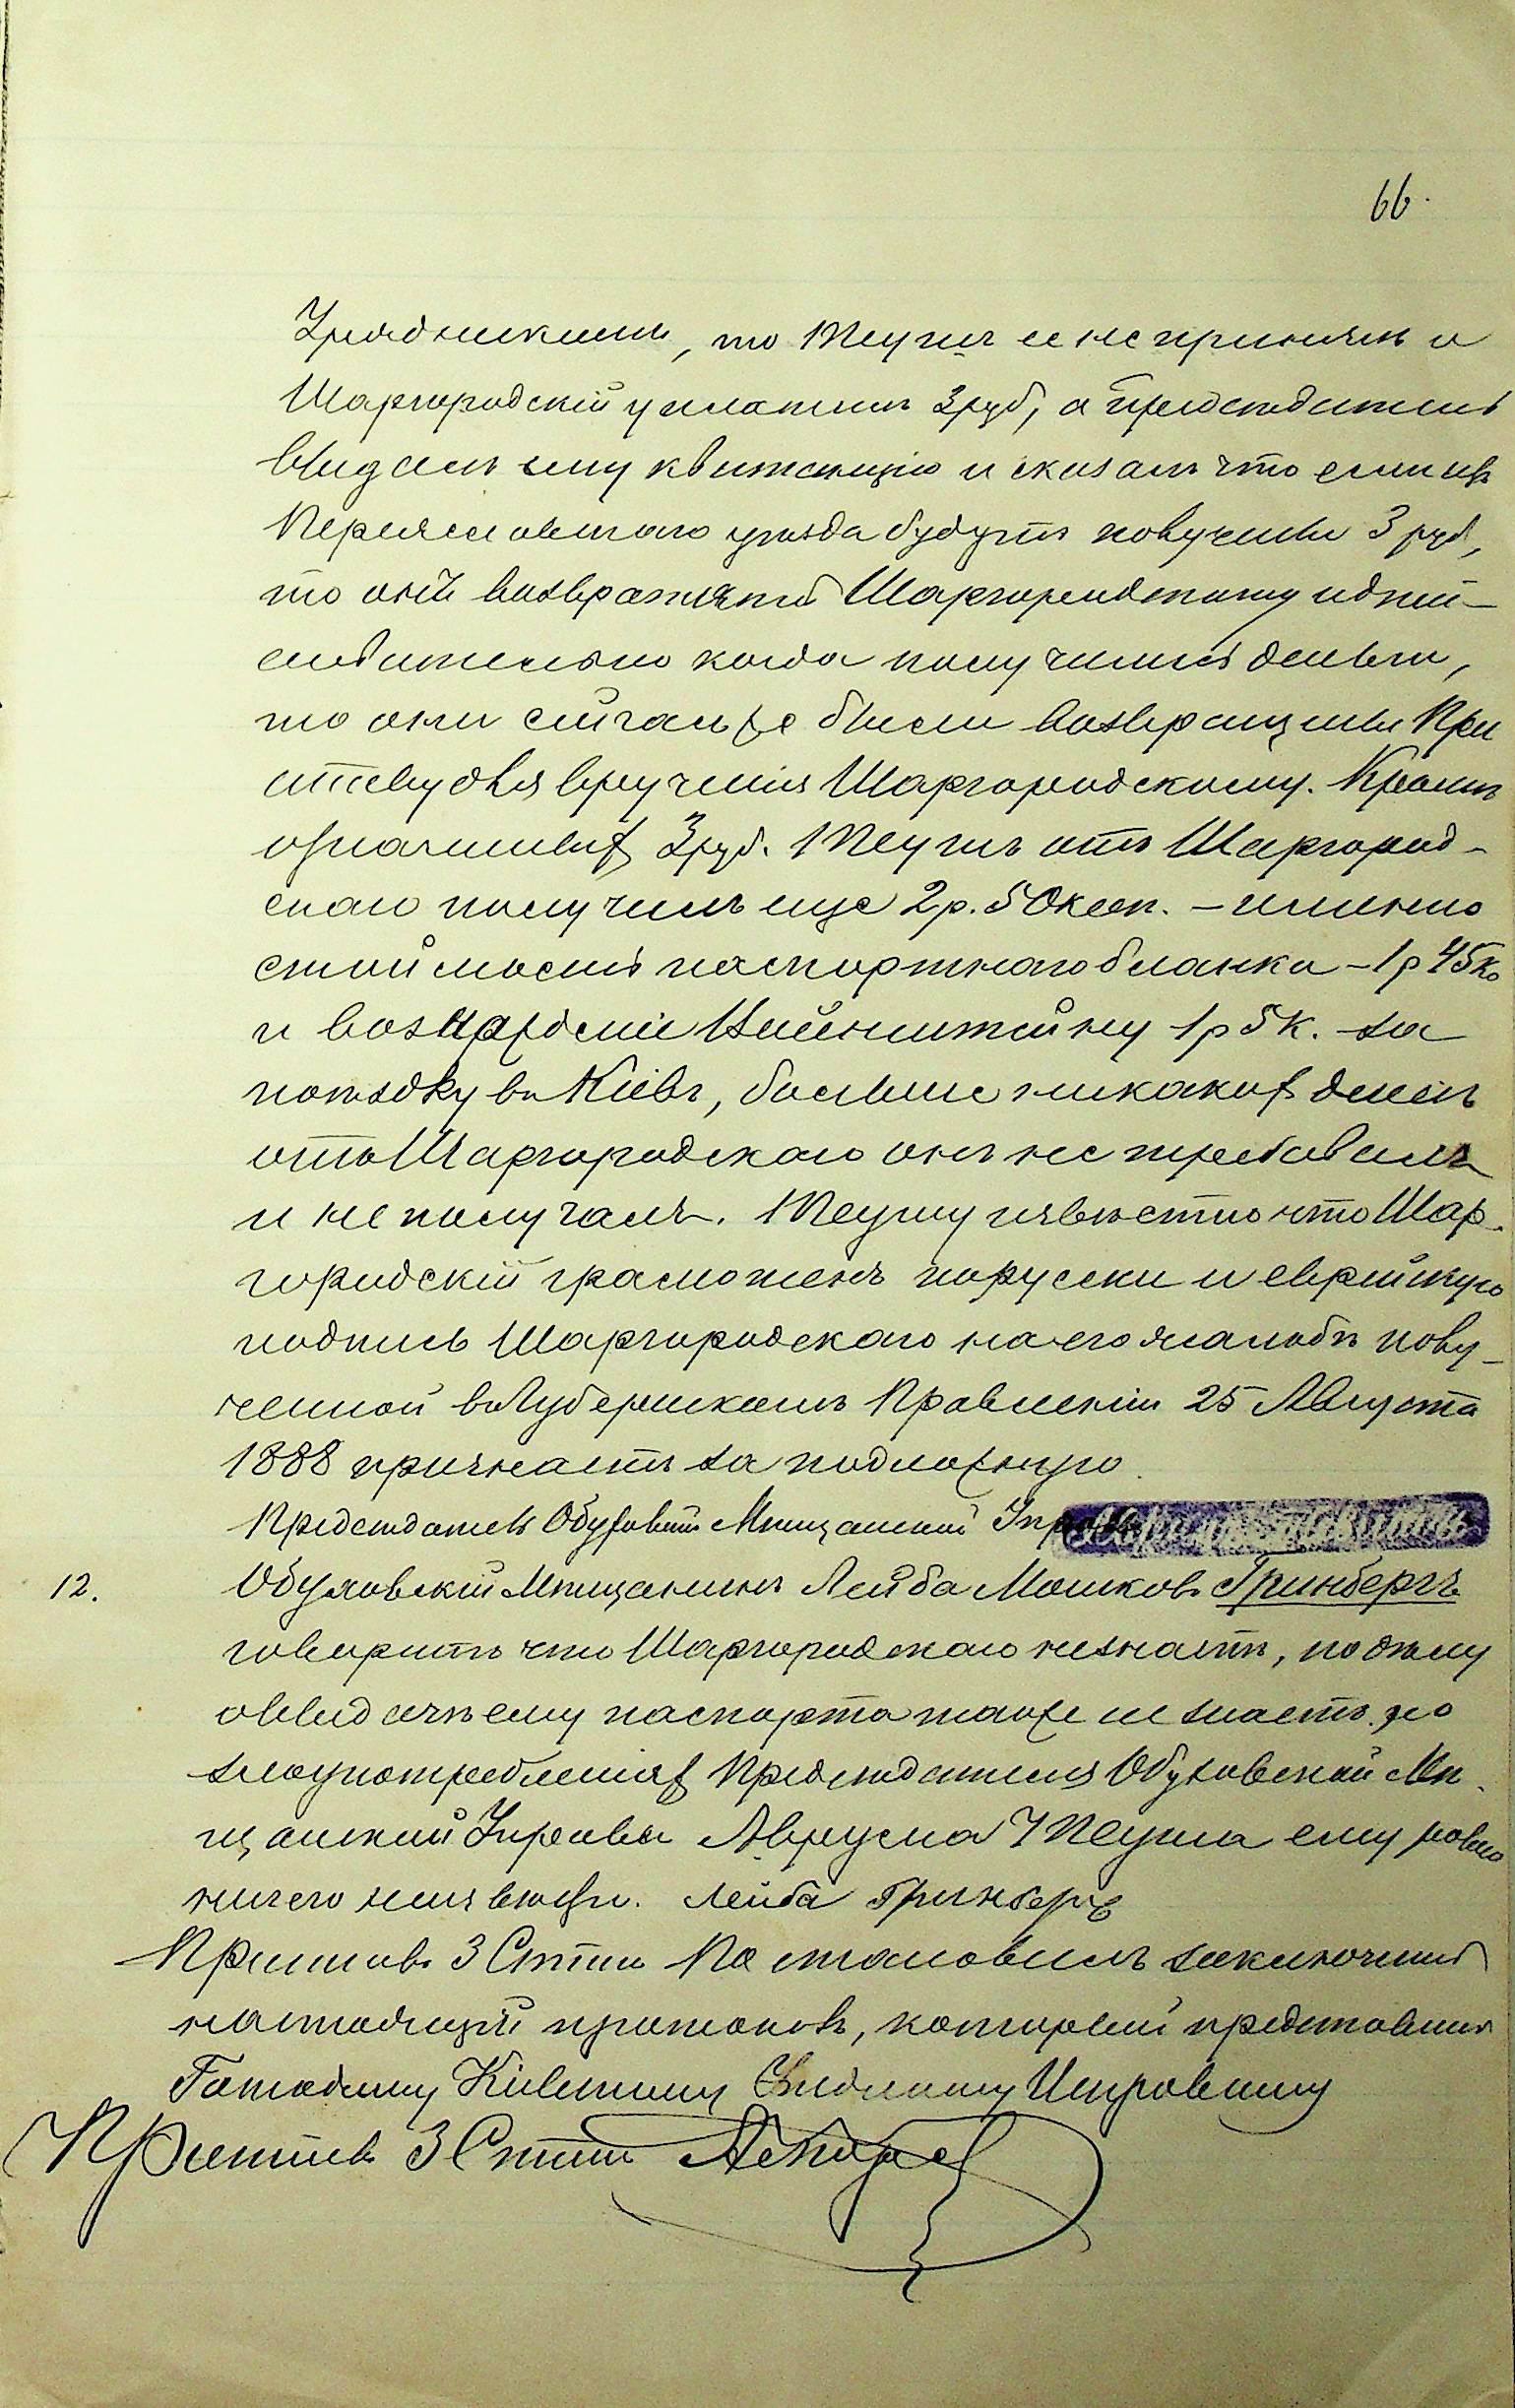 66.
Урядникомъ, то Теушъ ее не принялъ и
Шаргородскій уплатилъ 3 руб, а председатель
выдалъ ему квитанцію и сказалъ что если изъ
Переяславскаго уезда будутъ получены 3 руб,
то онѣ возвратятся Шаргородскому и дѣй-
ствительно когда получились деньги,
то они сейчасъ же были возвращены При
ставу для врученія Шаргородскому. Кромѣ
означенныхъ 3 руб. Теушъ отъ Шаргород-
скаго получилъ еще 2 р. 50 коп. – именно
стоимость паспортнаго бланка – 1 р 45 к.
и вознагражденіе 1 р 5 к. за
поѣздку въ Кіевъ, больше никакихъ денегъ
отъ Шаргородскаго онъ не требовалъ
и не получалъ. Теушу извѣстно что Шар-
городскій грамотенъ порусски и еврейскую
подпись Шаргородскаго на его жалобѣ полу-
ченной въ Губернскомъ Правленіи 25 Августа
1888 признаетъ за подложную.
Председатель Обуховской Мѣщанской Управы
12. Обуховскій Мѣщанинъ Лейба Мошковъ Гринбергъ
говоритъ что Шаргородскаго незнаетъ, поэтому
о выдачѣ ему паспорта также не знаетъ, о
злоупотребленіяхъ Председателя Обуховской Мѣ-
щанской Управы Аврума Теуша ему ровно
ничего неизвѣстно. Лейба Гринбергъ
Приставъ 3 Стана Постановилъ заключить
настоящій протоколъ, который представить
Господину Кіевскому Уѣздному Исправнику
Приставъ 3 Стана